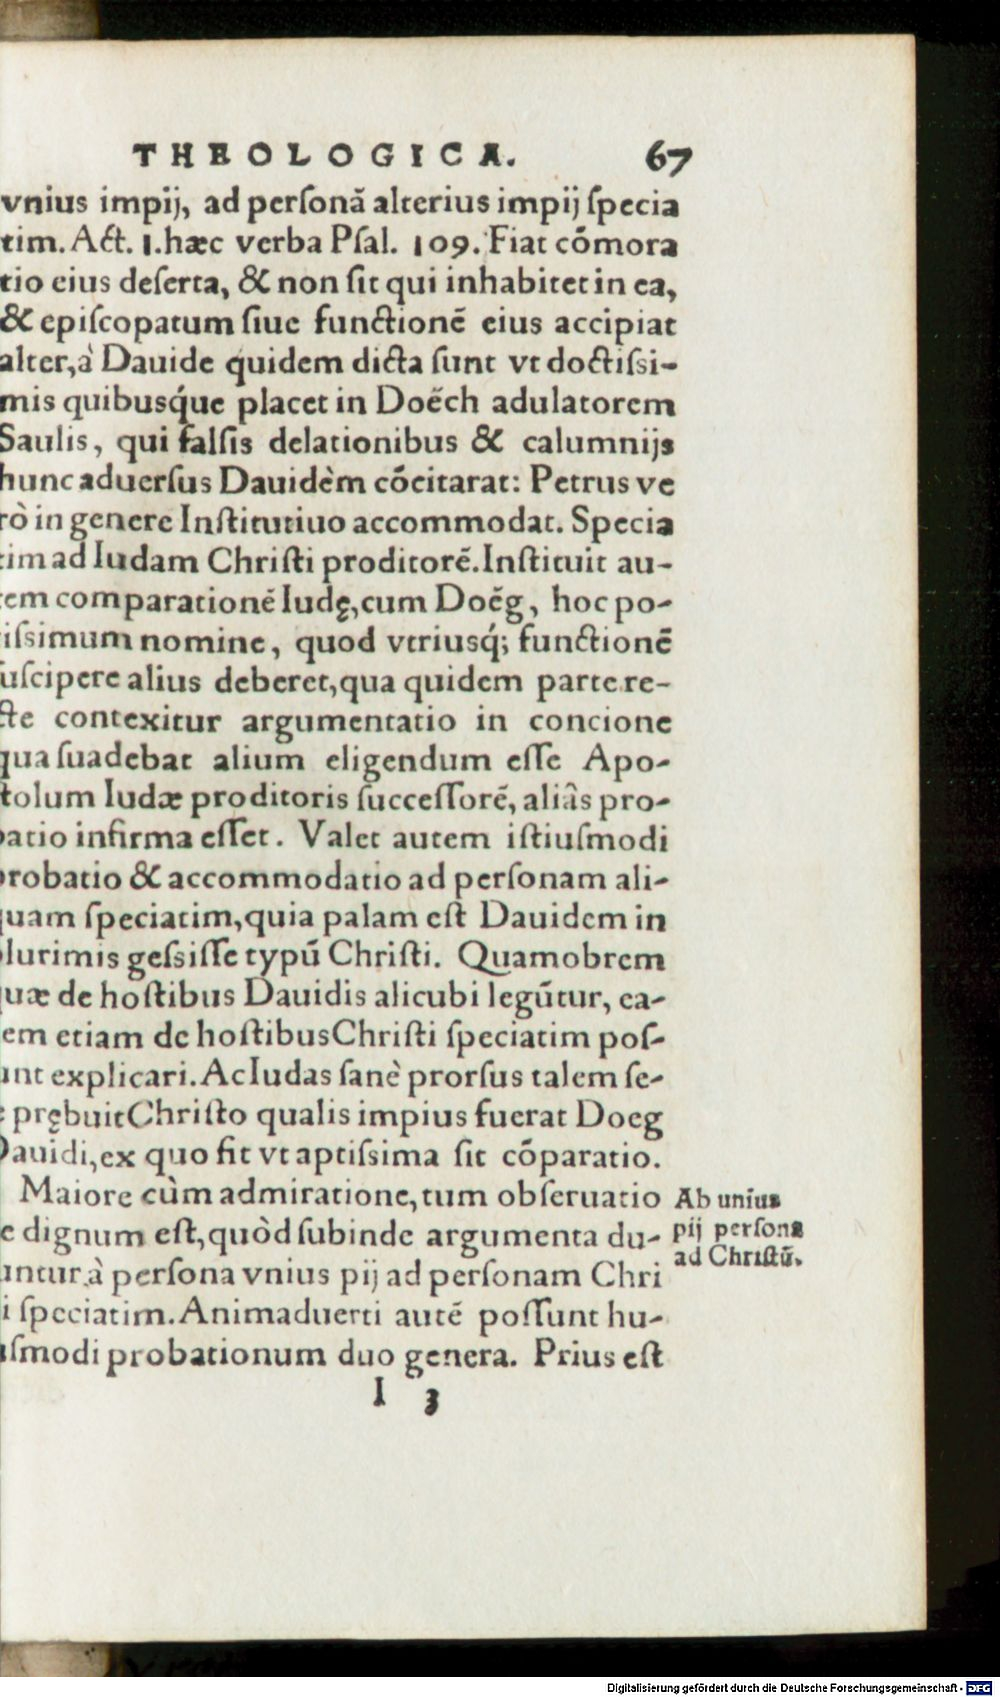 THEOLOGICA. 67
vnius impij, ad personā alterius impij specia
tim. Act. 1. hæc verba Psal. 109. Fiat cōmora
tio eius deserta, & non sit qui inhabitet in ea,
& episcopatum siue functionē eius accipiat
alter, à Dauide quidem dicta sunt vt doctissi-
mis quibusq́ue placet in Doëch adulatorem
Saulis, qui falsis delationibus & calumnijs
hunc aduersus Dauidèm cōcitarat: Petrus ve
rò in genere Institutiuo accommodat. Specia
tim ad Iudam Christi proditorē. Instituit au-
tem comparationē Iudę, cum Doëg, hoc po-
tissimum nomine, quod vtriusq́; functionē
suscipere alius deberet, qua quidem parte re-
cte contexitur argumentatio in concione
qua suadebat alium eligendum esse Apo-
stolum Iudæ proditoris successorē, aliâs pro-
batio infirma esset. Valet autem istiusmodi
probatio & accommodatio ad personam ali-
quam speciatim, quia palam est Dauidem in
plurimis gessisse typū Christi. Quamobrem
quæ de hostibus Dauidis alicubi legūtur, ea-
dem etiam de hostibus Christi speciatim pos-
sunt explicari. Ac Iudas sanè prorsus talem se-
e prębuit Christo qualis impius fuerat Doeg
Dauidi, ex quo fit vt aptissima sit cōparatio.
Maiore cùm admiratione, tum obseruatio
e dignum est, quòd subinde argumenta du-
untur à persona vnius pij ad personam Chri
i speciatim. Animaduerti autē possunt hu-
usmodi probationum duo genera. Prius est
Ab unius
pij persona
ad Christū.
I 3
Digitalisierung gefördert durch die Deutsche Forschungsgemeinschaft - DFG